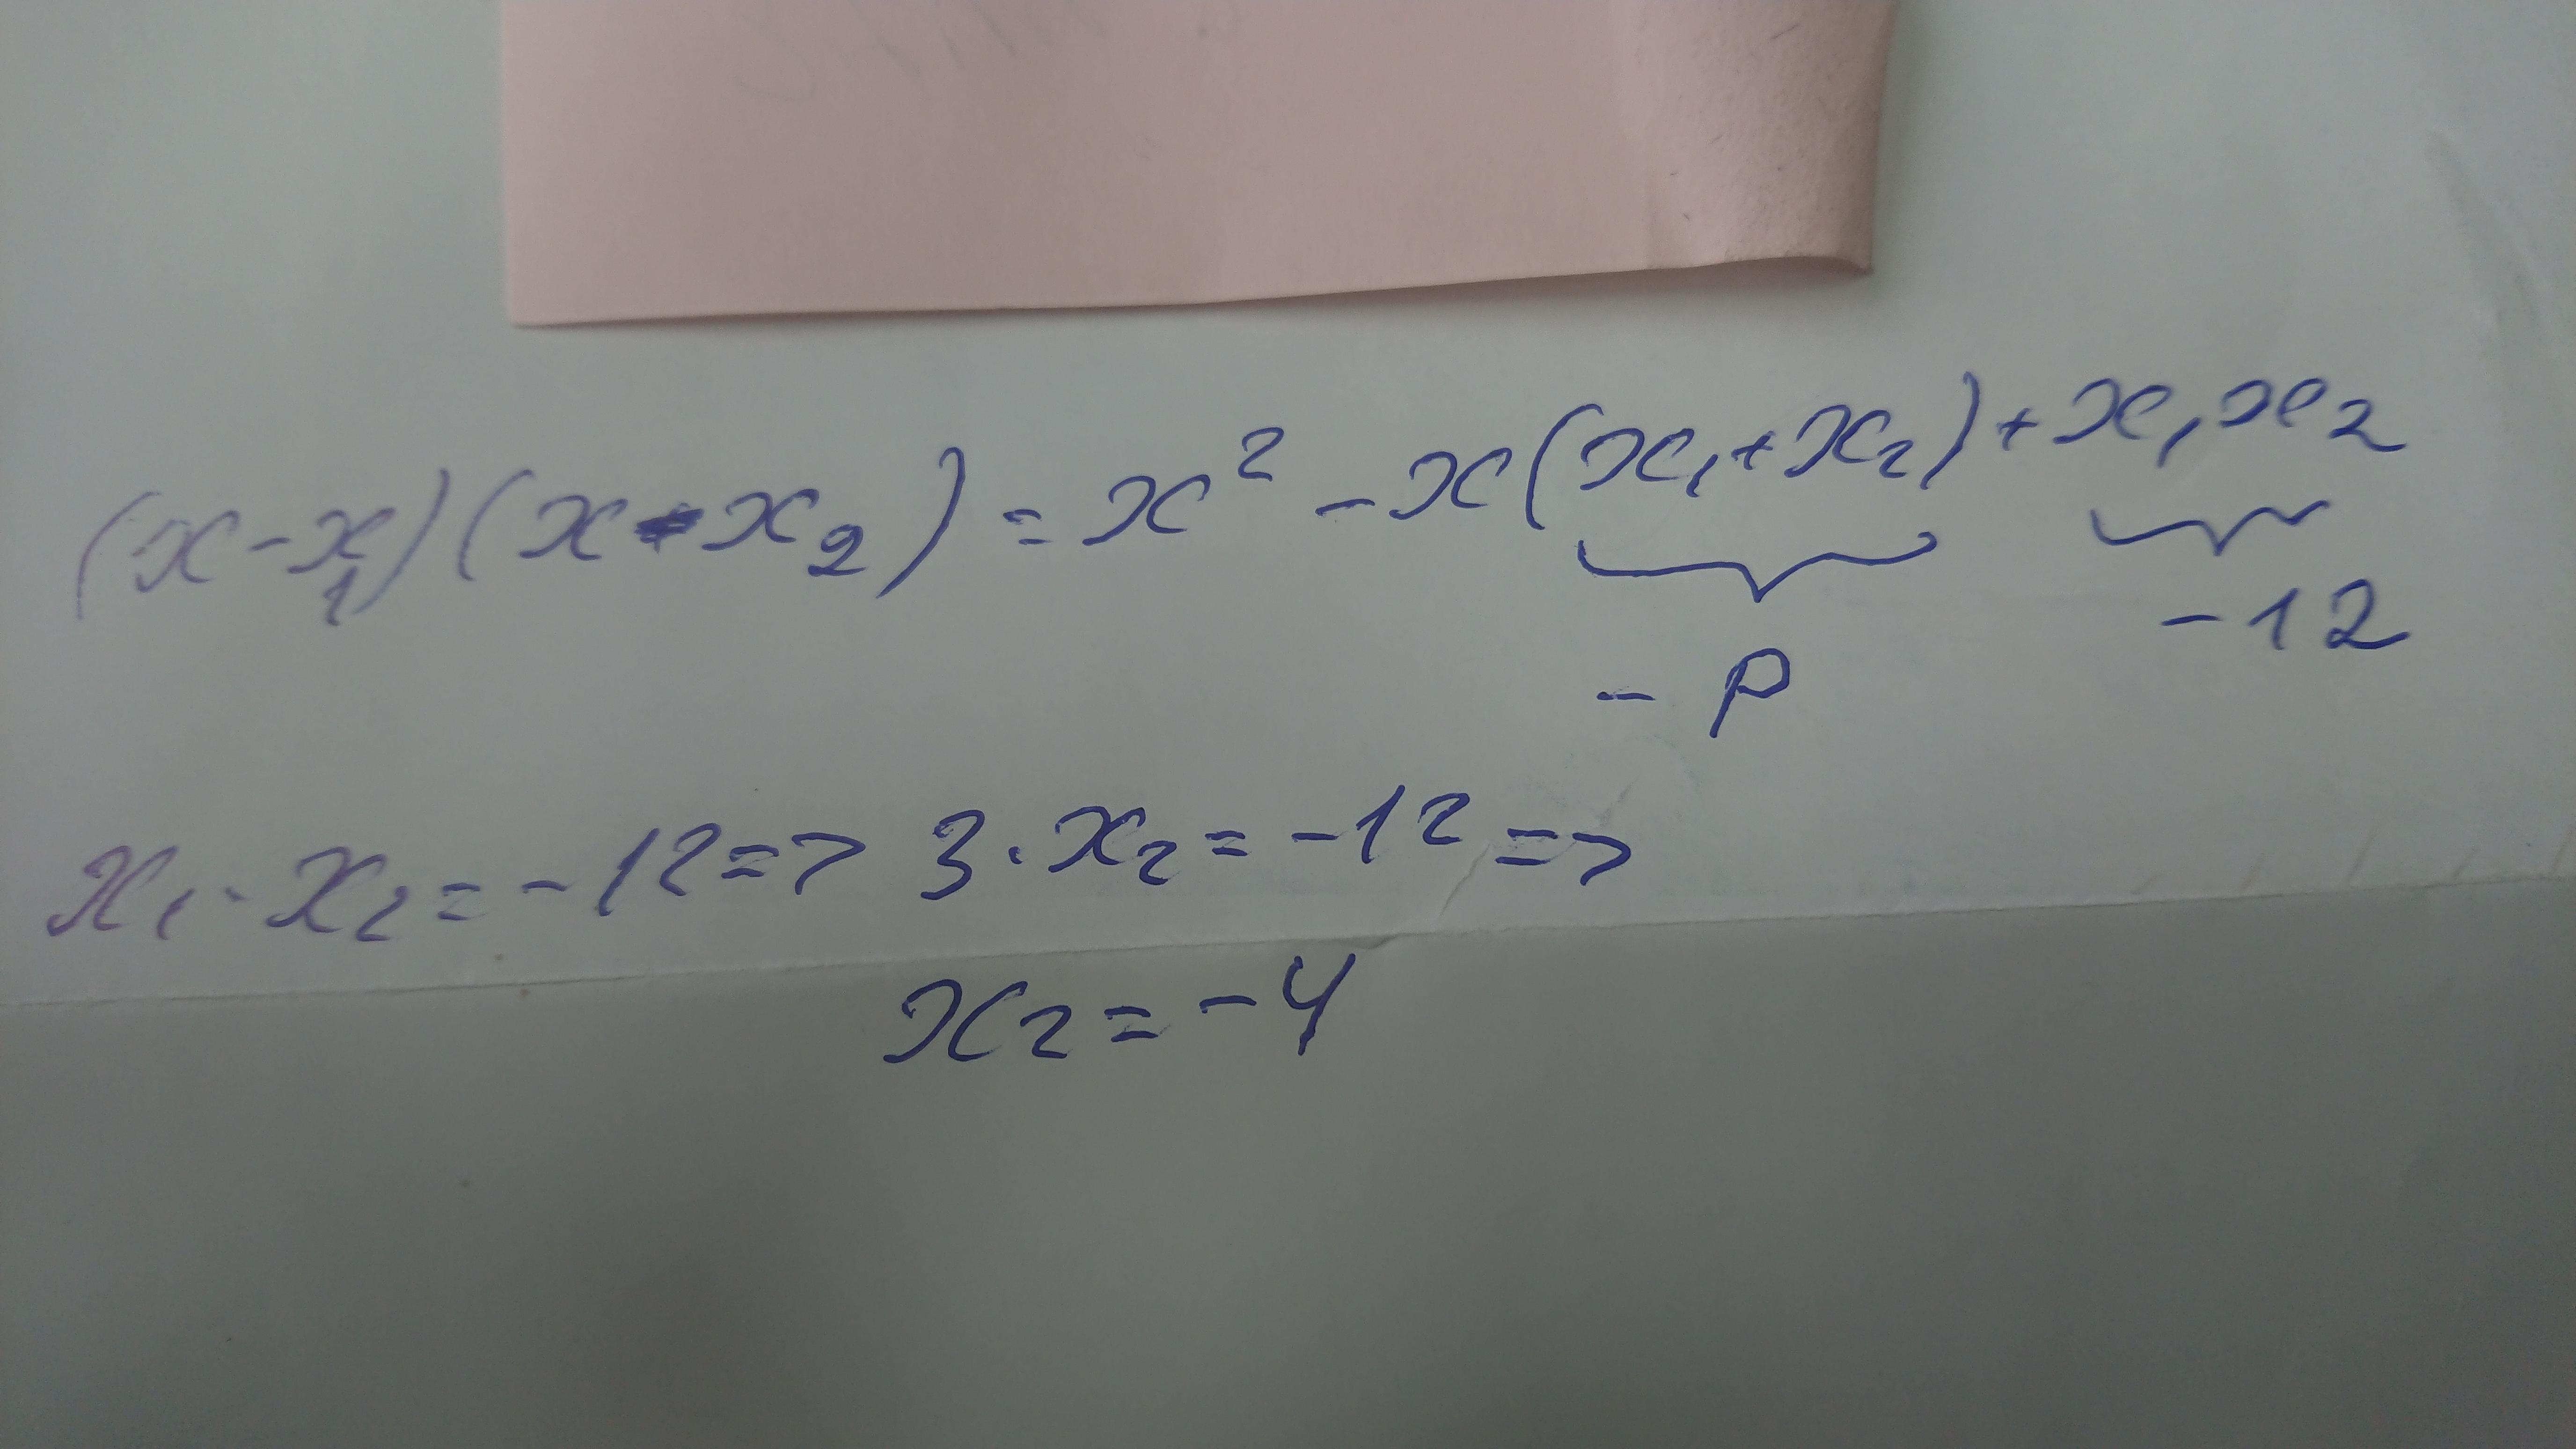 (x-x₁)(x-x₂)=x²-x(x₁+x₂)+x₁x₂
-p -12
x₁·x₂=-12=> 3·x₂=-12=>
x₂=-4